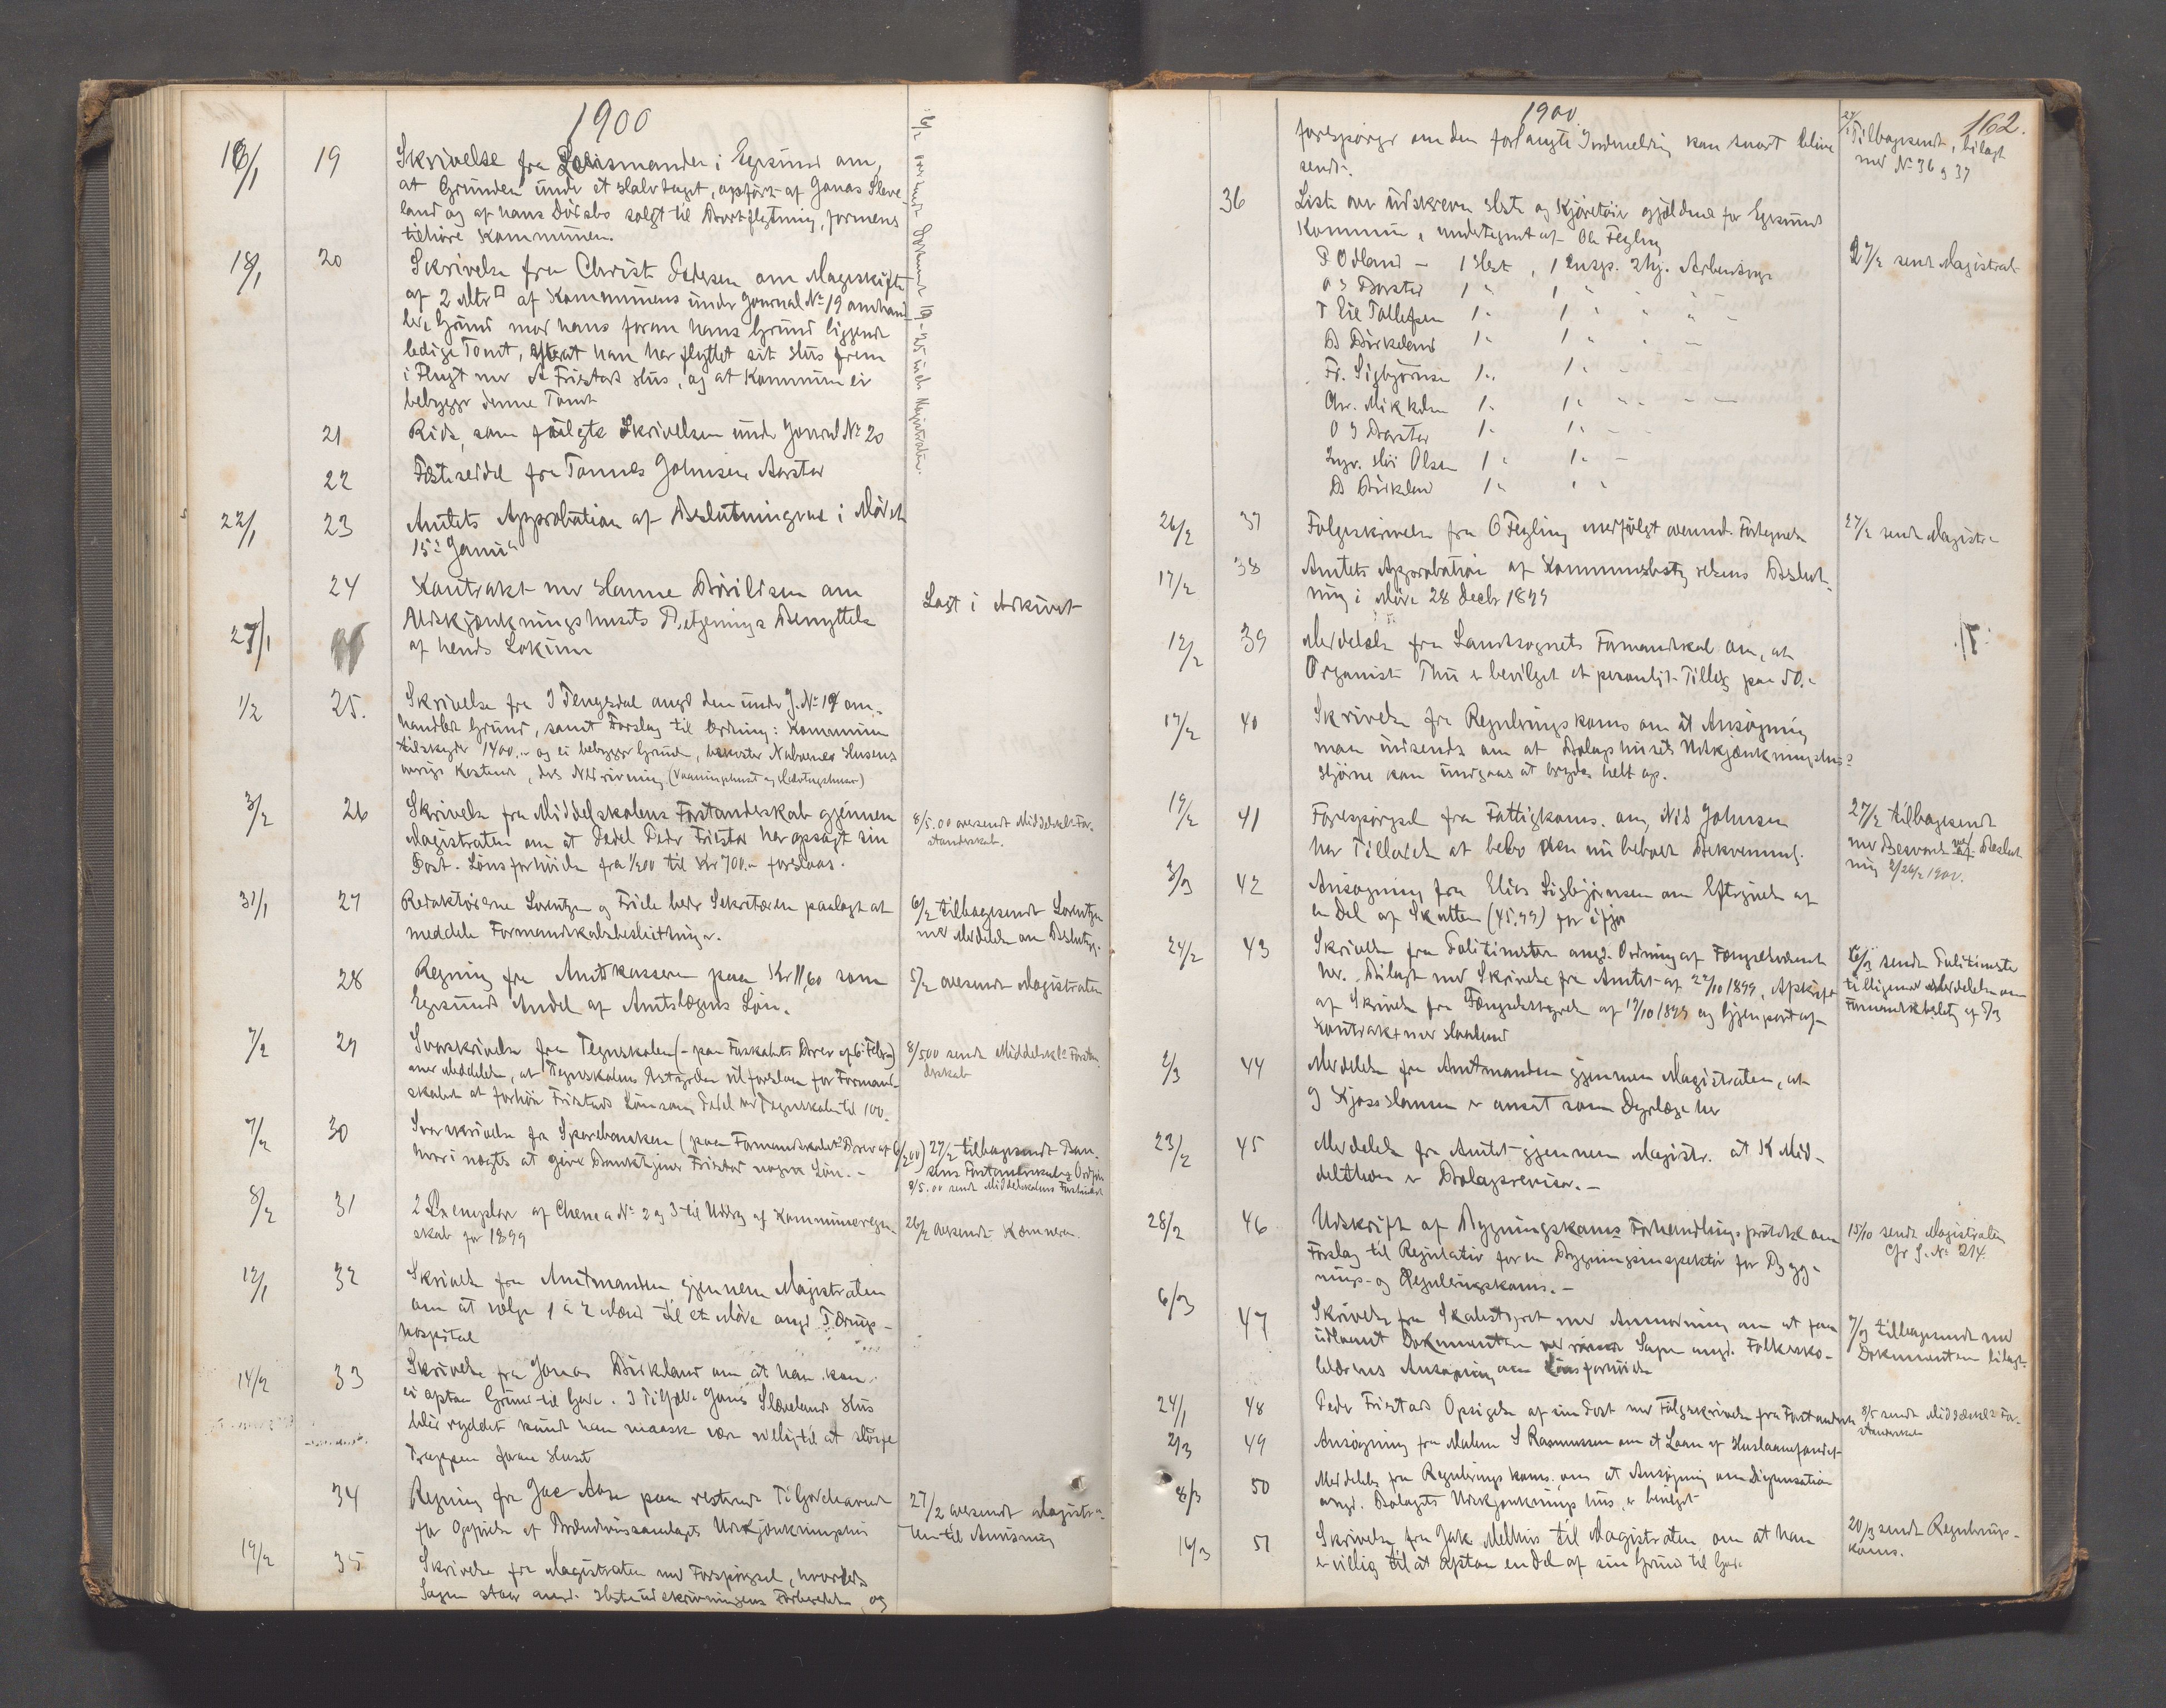 1900
16/1 19 Skrivelse fra Lensmanden i Egersund om,
at Grunden under et Halvtaget, opført af Jonas Sleve-
land og af hans Dødsbo solgt til Bortflytning, formenes
tilhøre Kommunen.
18/1 20 Skrivelse fra Christ Pedersen om Mageskifte
af 2 Mtr □ af Kommunens under Journal No 19 omhand
lede Grund mod hans foran hans Grund liggende
ledige Tomt, efterat han har flyttet sit Hus frem
i Flugt med Fristads Hus, og at Kommunen ei
bebygger denne Tomt
21 Rids, som fulgte Skrivelsen under Journal No 20
22 Fæsteseddel fra Tønnes Johnsen Aarstad
22/1 23 Amtets Approbation af Beslutningerne i Møde
15de Januar
24 Kontrakt med Hanne Basilisen om
Udskjænkningshusets Betjenings Benyttelse
af hendes Lokum
Lagt i Arkivet
27/1
6/2 oversendt Dokument 19-25 inch Magistraten.
1/2 25. Skrivelse fra J Tengesdal angd den under J. No 19 om-
handlede Grund, samt Forslag til Ordning: Kommunen
tilskyder 1400,- og ei bebygger Grunden, Naboerne Husenes
øvrige Kostende, des Nedrivning (Vaaningshuset og Halvtagshuset)
3/2 26 Skrivelse fra Middelskolens Forstanderskab gjennem
Magistraten om at Pedel Peder Fristad har opsagt sin
Post. Lønsforhøielse fra 1/200 til Kr 700.- foreslaaes.
8/5.00 oversendt Middelskls For-
standerskab.
31/1 27 Redaktørerne Lorentzen og Friele beder Sekretæren paalagt at
meddele Formandskabsbeslutninger.
6/2 tilbagesendt Lorentzen
med Meddelelse om Beslutng.
28 Regning fra Amtskassereren paa Kr 11,60 som
Egersunds Andel af Amtslægens Løn.
5/2 oversendt Magistraten
7/2 29 Svarskrivelse fra Tegneskolen (- paa Fskabets Brev af 6 Febr)
med Meddelelse, at Tegneskolens Bestyrelse vil foreslaa for Formand-
skabet at forhøie Fristads Løn som Pedel ved Tegneskolen til 100.
8/500 sendt Middelskls Forstan-
derskab
7/2 30 Svarskrivelse fra Sparebanken (paa Formandskabets Brev af 6/2 00)
hvori nægtes at give Banktjener Fristad nogen Løn. -
27/2 tilbagesendt Ban-
kens Forstanderskab
8/5.00 sendt Middelskolens Forstandersk
8/2 31 2 Exemplar af Schema No 2 og 3 til Uddrag af Kommuneregn
skab for 1899
26/2 oversendt Kæmneren.
12/1 32 Skrivelse fra Amtmanden gjennem Magistraten
om at vælge 1 à 2 Mænd til et Møde angd Tærings-
hospital
14/2 33 Skrivelse fra Jonas Birkeland om at han kan
ei optaa Grund til Gade. I Tilfælde Jonas Slevelands Hus
blir ryddet kunde han maaske være villig til at sløife
Trappen foran Huset
34 Regning fra Jac Aase paa resterende Tilgodehavende
for Opførelse af Brændevinssamlagets Udskjænkningshus
27/2 oversendt Magistra-
ten til Anvisning
19/2 35 Skrivelse fra Magistraten med Forespørgsel, hvorledes
Sagen staar angd. Hesteudskrivningens Forberedelse, og
1900 162.
forespørger om den forlangte Indmelding kan snart blive
sendt.
27/2 Tilbagesendt, bilagt
med No 36 & 37
36 Liste over udskrevne Heste og Kjøretøier gjældende for Egersund
Kommune, undertegnet af Ole Feyling
27/2 sendt Magistrat
P Odland - 1 Hest, 1 Ensp. 2hj. Arbeidsvogn
O J Aarstad 1 " 1 " " " -
T Eie Tollefsen 1 " 1 " " " -
B Birkeland 1 " 1 " " -
Fr. Sigbjørnsen 1 " 1 " -
Chr. Mikkelsen 1 " 1 " " " -
O J Aarstad 1 " 1 " - -
Ingv. Høi Olsen 1 " 1 " -
B Birkeland 1 " " "
26/2 37 Følgeskrivelse fra O Feyling medfulgt ovennvnt Fortegnelse
27/2 sendt Magistr.
17/2 38 Amtets Approbation af Kommunebestyrelsens Beslut-
ning i Møde 28 Decbr 1899
12/2 39 Meddelelse fra Landsognets Formandskab om, at
Organist Thu er bevilget et personligt Tillæg paa 50.-
17/2 40 Skrivelse fra Reguleringskoms om at Ansøgning
maa indsendes om at Bolagshusets Udskjænkningshus
Hjørne kan undgaas at brydes helt op.
19/2 41 Forespørgsel fra Fattigkoms. om Nils Johnsen
har Tilladelse at bebo den nu beboede Bekvemml.
27/2 tilbagesendt
med Besvarelse ved af Beslut
ning 26/2 1900.
3/3 42 Ansøgning fra Elias Sigbjørnsen om Eftergivelse af
en Del af Skatten (45,99) for ifjor
24/2 43 Skrivelse fra Politimesteren angd. Ordning af Fængselsvæsenet
her. Bilagt med Skrivelse fra Amtet af 22/10 1899, Afskrift
af Skrivelse fra Fængselsstyrelsen af 19/10 1899 og Gjenpart af
Kontrakt med Haaland
6/3 sendt Politimester
tilligemed Meddelelse om
Formandskbeslutg af 5/3
2/3 44 Meddelelse fra Amtmanden gjennem Magistraten, at
J Kjos Hansen er ansat som Dyrlæge her
23/2 45 Meddelelse fra Amtet gjennem Magistr. at K Mid-
delthon er Bolagsrevisor. -
28/2 46 Udskrift af Bygningskoms Forhandlingsprotokol om
Forslag til Regulativ for en Bygningsinspektør for Bygg-
nings- og Reguleringskoms. -
15/10 sendt Magistraten
Cfr J. No 214.
6/3 47 Skrivelse fra Skolestyret med Anmodning om at faa
udlaant Dokumenterne ved Sagen angd. Folkesko-
lelærernes Ansøgning om Lønsforhøielse
7/3 tilbagesendt med
Dokumenterne bilagt
24/1 48 Peder Fristads Opsigelse af sin Post med Følgeskrivelse fra Forstandersk
8/5 sendt Middelskls For-
standerskab
2/3 49 Ansøgning fra Malene S Rasmussen om et Laan af Huslaanefondet
8/3 50 Meddelelse fra Regulerings koms. om at Ansøgning om Dispensation
angd. Bolagets Udskjænknings hus er bevilget
16/3 51 Skrivelse fra Jak Melhus til Magistraten om at han
er villig til at afstaa en Del af sin Grund til Gade
20/3 sendt Regulerings-
koms.